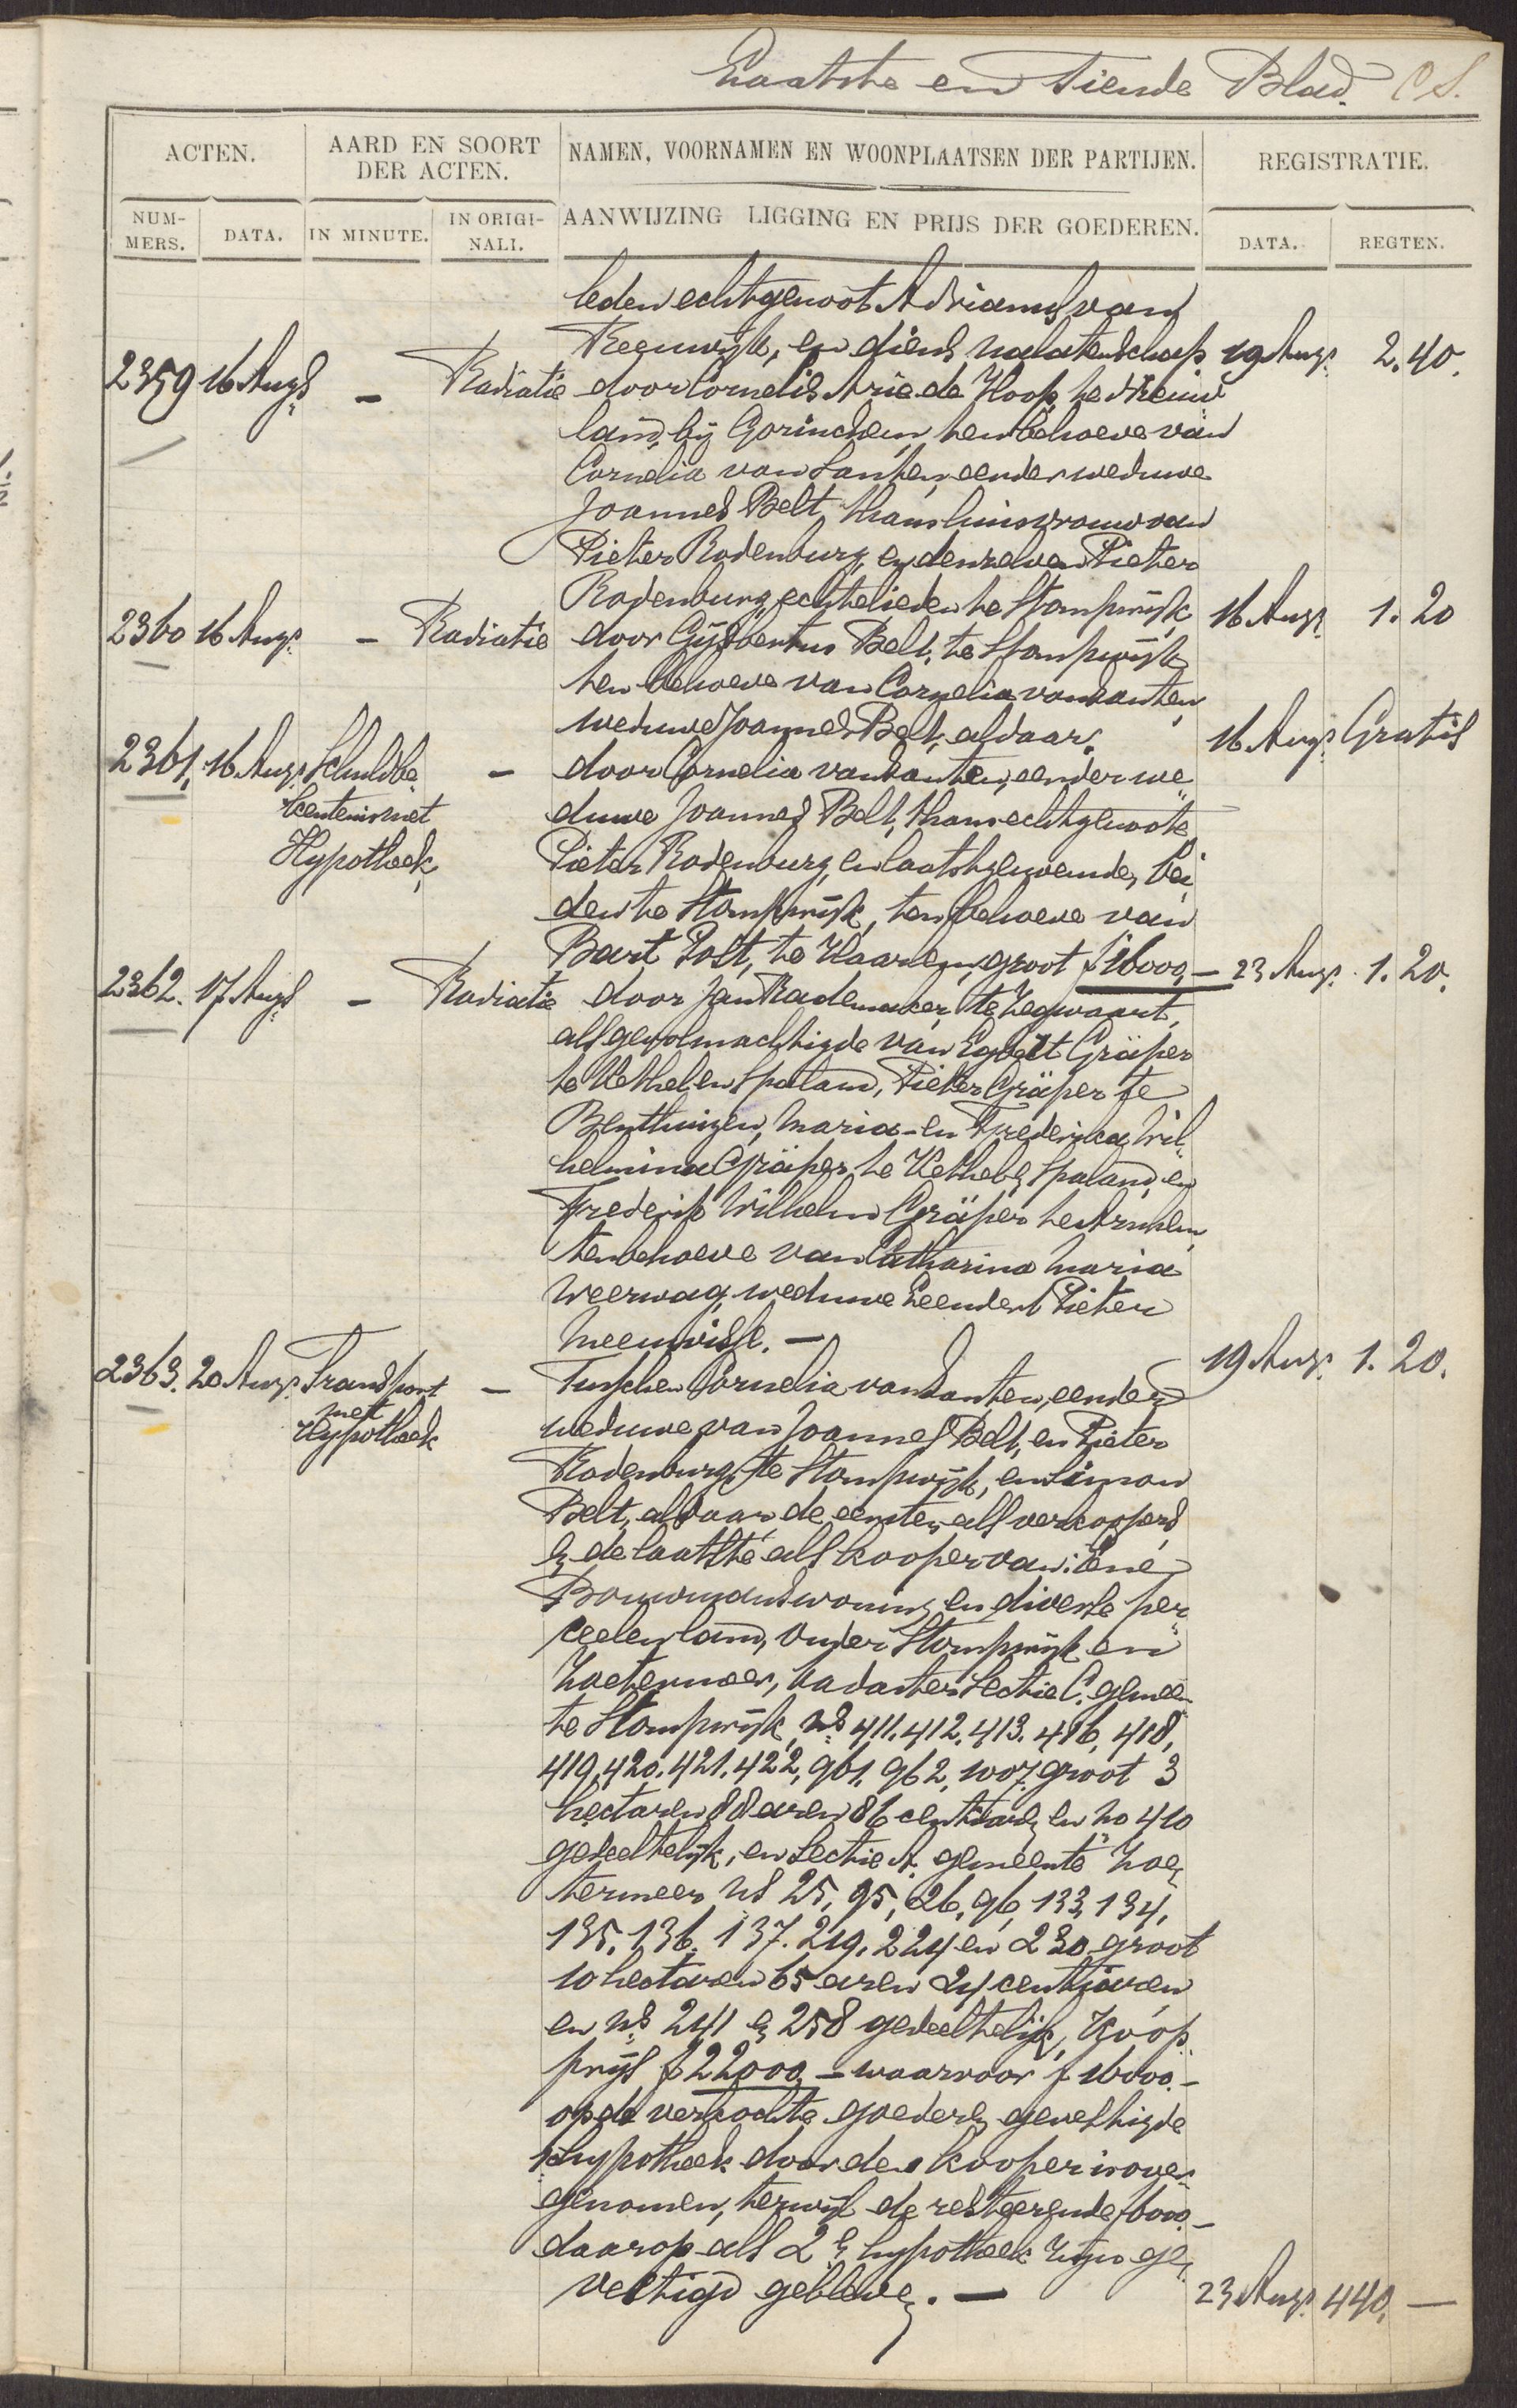 Laatste en Tiende Blad. C S.
ACTEN. AARD EN SOORT DER ACTEN. NAMEN, VOORNAMEN EN WOONPLAATSEN DER PARTIJEN. REGISTRATIE.
NUM-MERS. DATA. IN MINUTE. IN ORIGI-NALI. AANWIJZING LIGGING EN PRIJS DER GOEDEREN. DATA. REGTEN.
leden echtgenoot Adrianus van
Reeuwijk, en diens nalatenschap 19 Augs. 2.40.
2359 16 Augs. — Radiatie door Cornelis Arie de Hoop, te Nieuw
land, bij Gorinchem, ten behoeve van
Cornelia van Santen, eerder weduwe
Joannes Belt, thans huisvrouw van
Pieter Rodenburg, en denzelven Pieter
Rodenburg, echtelieden te Stompwijk 16 Augs. 1.20
2360 16 Augs. — Radiatie door Gijsbertus Belt, te Stompwijk
ten behoeve van Cornelia van Santen,
weduwe Joannes Belt, aldaar. 16 Augs. Gratis
2361. 16 Augs. Schuldbe — door Cornelia van Santen, eerder we
kentenis met duwe Joannes Belt, thans echtgenoote
Hypotheek, Pieter Rodenburg, en laatstgenoemde, bei
den te Stompwijk, ten behoeve van
Bart Post, te Haarlem, groot f 16000,— 23 Augs. 1.20.
2362. 17 Augs. — Radiatie door Jan Rademaker, te Zegwaart,
als gevolmachtigde van Egbert Gräper
te Kethel en Spaland, Pieter Gräper te
Benthuizen, Maria- en Frederica Wil
helmina Gräper, te Kethel en Spaland, en
Frederik Wilhelm Gräper te Arnhem,
ten behoeve van Catharina Maria
Weerwag, weduwe Leendert Pieter
Meeuwisse. — 19 Augs. 1.20.
2363. 20 Augs. Transport — Tusschen Cornelia van Santen, eerder
met weduwe van Joannes Belt, en Pieter
Hypotheek Rodenburg, te Stompwijk, en Simon
Belt, aldaar, de eersten als verkoopers
en de laatste als kooper van: Eene
Bouwmanswoning en diverse per
ceelen land, onder Stompwijk en
Zoetermeer, kadaster Sectie C. gemeen
te Stompwijk, ns 411. 412. 413. 416, 418,
419. 420. 421. 422, 961, 962, 1007. groot 3
hectaren 88 aren 86 centiaren en no 410
gedeeltelijk, en Sectie A. gemeente Zoe
termeer ns 25, 95, 26, 96, 133, 134,
135, 136, 137. 219, 224 en 230 groot
10 hectaren 65 aren 24 centiaren
en ns 241 en 258 gedeeltelijk, Koop
prijs f 22000,— waarvoor f 16000.—
op de verkochte goederen gevestigde
1e hypotheek door den kooper is over
genomen, terwijl de resteerende f 6000.—
daarop als 2e hypotheek zijn ge
vestigd gebleven. — 23 Augs. 440,—